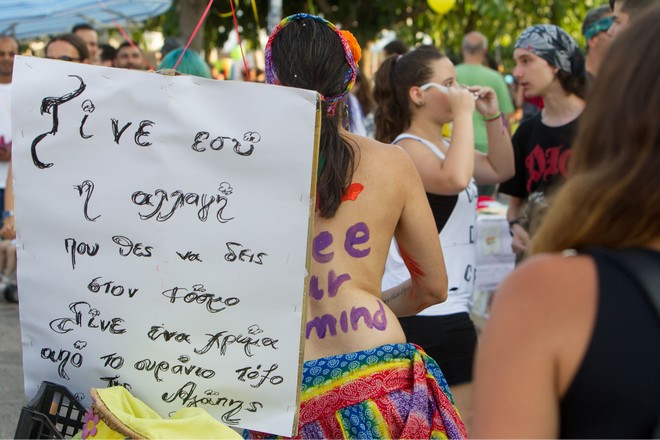 Γίνε εσύ
η αλλαγή
που θες να δεις
στον κόσμο
Γίνε ένα χρώμα
από το ουράνιο τόξο
Της Αγάπης
ee
ur
mind